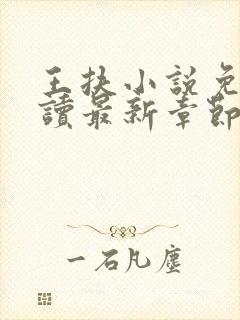 王扶小說免
讀最新章節
一石凡塵